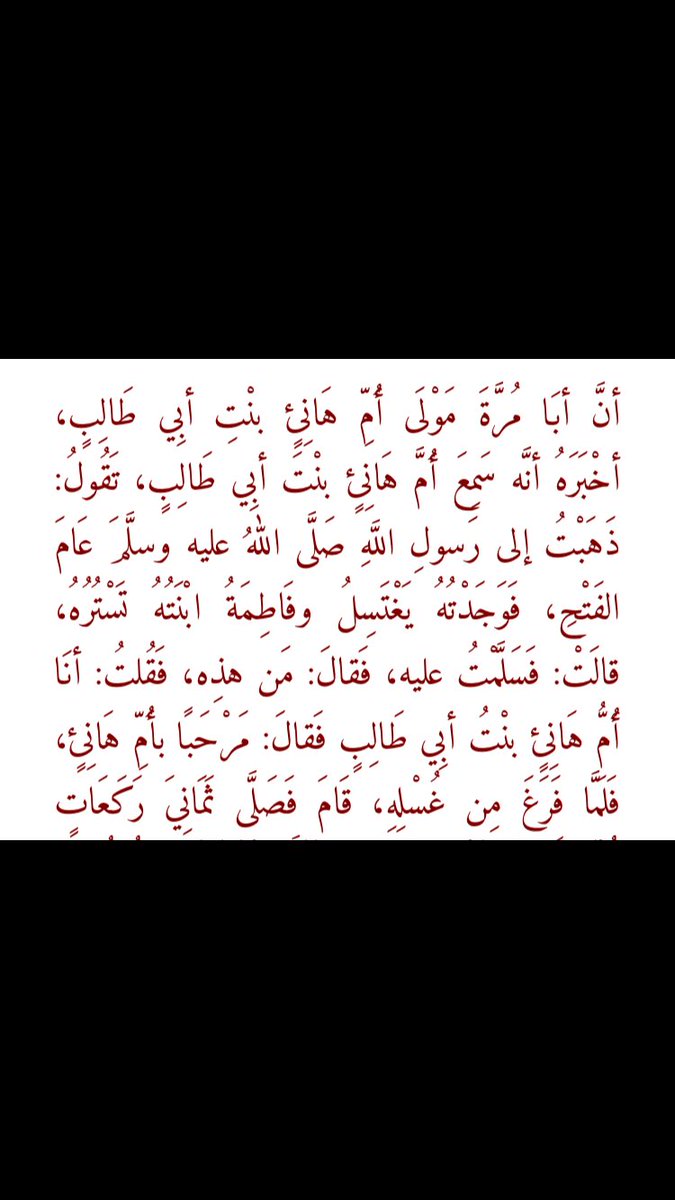 أنَّ أبَا مُرَّةَ مَوْلَى أُمِّ هَانِئٍ بنْتِ أبِي طَالِبٍ،
أخْبَرَهُ أنَّه سَمِعَ أُمَّ هَانِئٍ بنْتَ أبِي طَالِبٍ، تَقُولُ:
ذَهَبْتُ إلى رَسولِ اللَّهِ صَلَّى اللهُ عليه وسلَّمَ عَامَ
الفَتْحِ، فَوَجَدْتُهُ يَغْتَسِلُ وفَاطِمَةُ ابْنَتُهُ تَسْتُرُهُ،
قالَتْ: فَسَلَّمْتُ عليه، فَقالَ: مَن هذِه، فَقُلتُ: أنَا
أُمُّ هَانِئٍ بنْتُ أبِي طَالِبٍ فَقالَ: مَرْحَبًا بأُمِّ هَانِئٍ،
فَلَمَّا فَرَغَ مِن غُسْلِهِ، قَامَ فَصَلَّى ثَمَانِيَ رَكَعَاتٍ